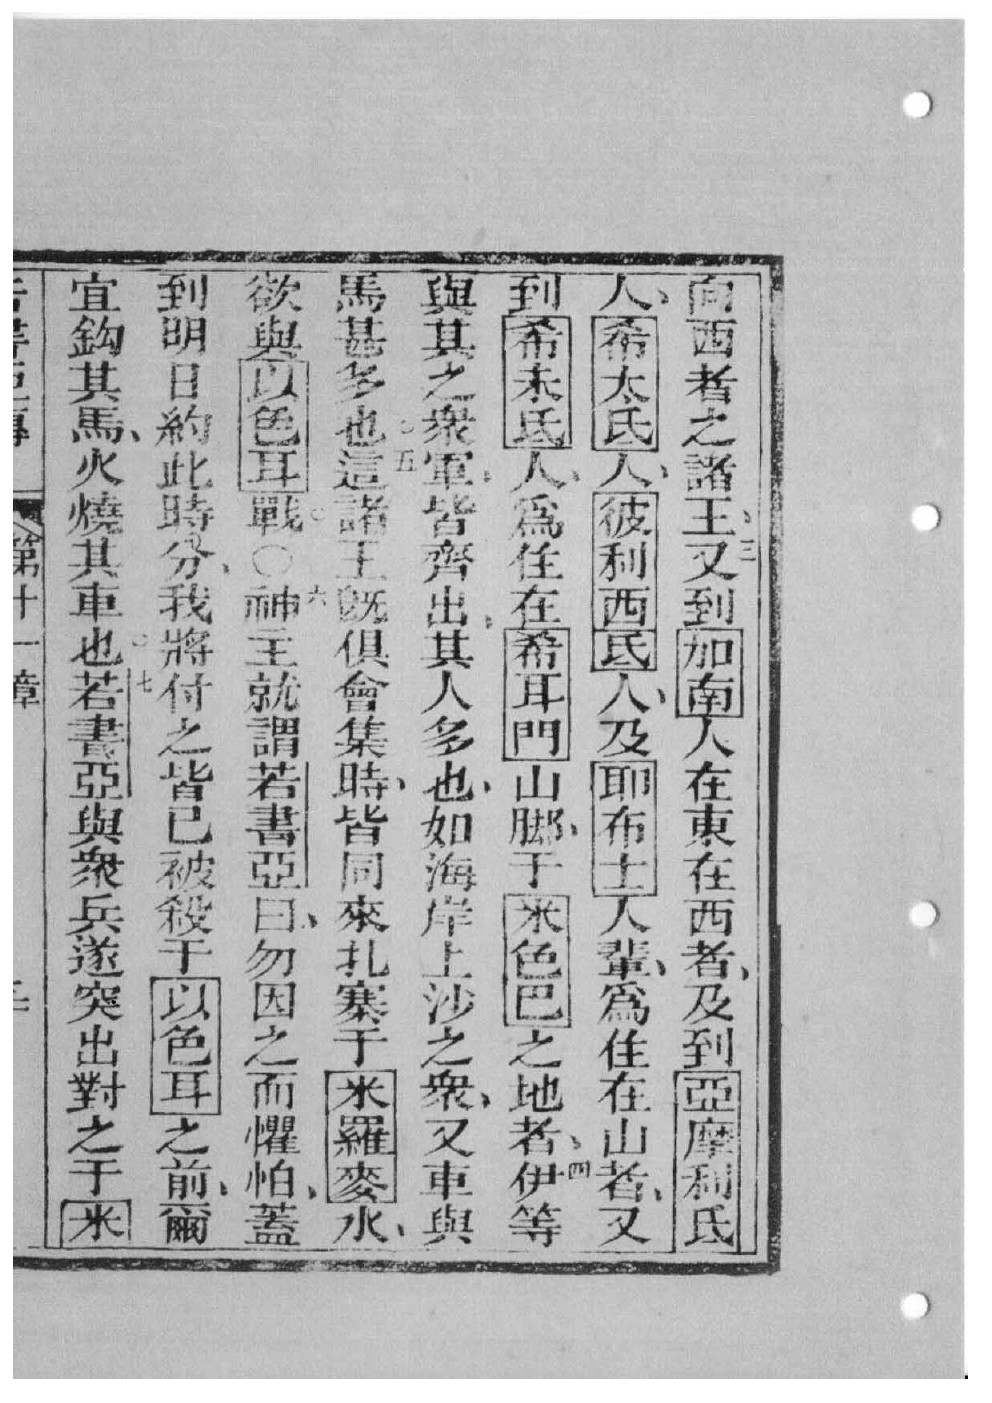 向西者之諸王、三又到加南人在東在西者、及到亞摩利氏
人、希太氏人、彼利西氏人、及耶布士人輩、爲住在山者、又
到希未氏人、爲住在希耳門山脚、于米色巴之地者、四伊等
與其之衆軍、皆齊出、其人多也、如海岸上沙之衆、又車與
馬甚多也。五這諸王旣俱會集時、皆同來扎寨于米羅麥水、
欲與以色耳戰。〇六神主就謂若書亞曰、勿因之而懼怕、蓋
到明日約此時分、我將付之皆已被殺于以色耳之前、爾
宜鈎其馬、火燒其車也。七若書亞與衆兵遂突出對之于米
第十一章